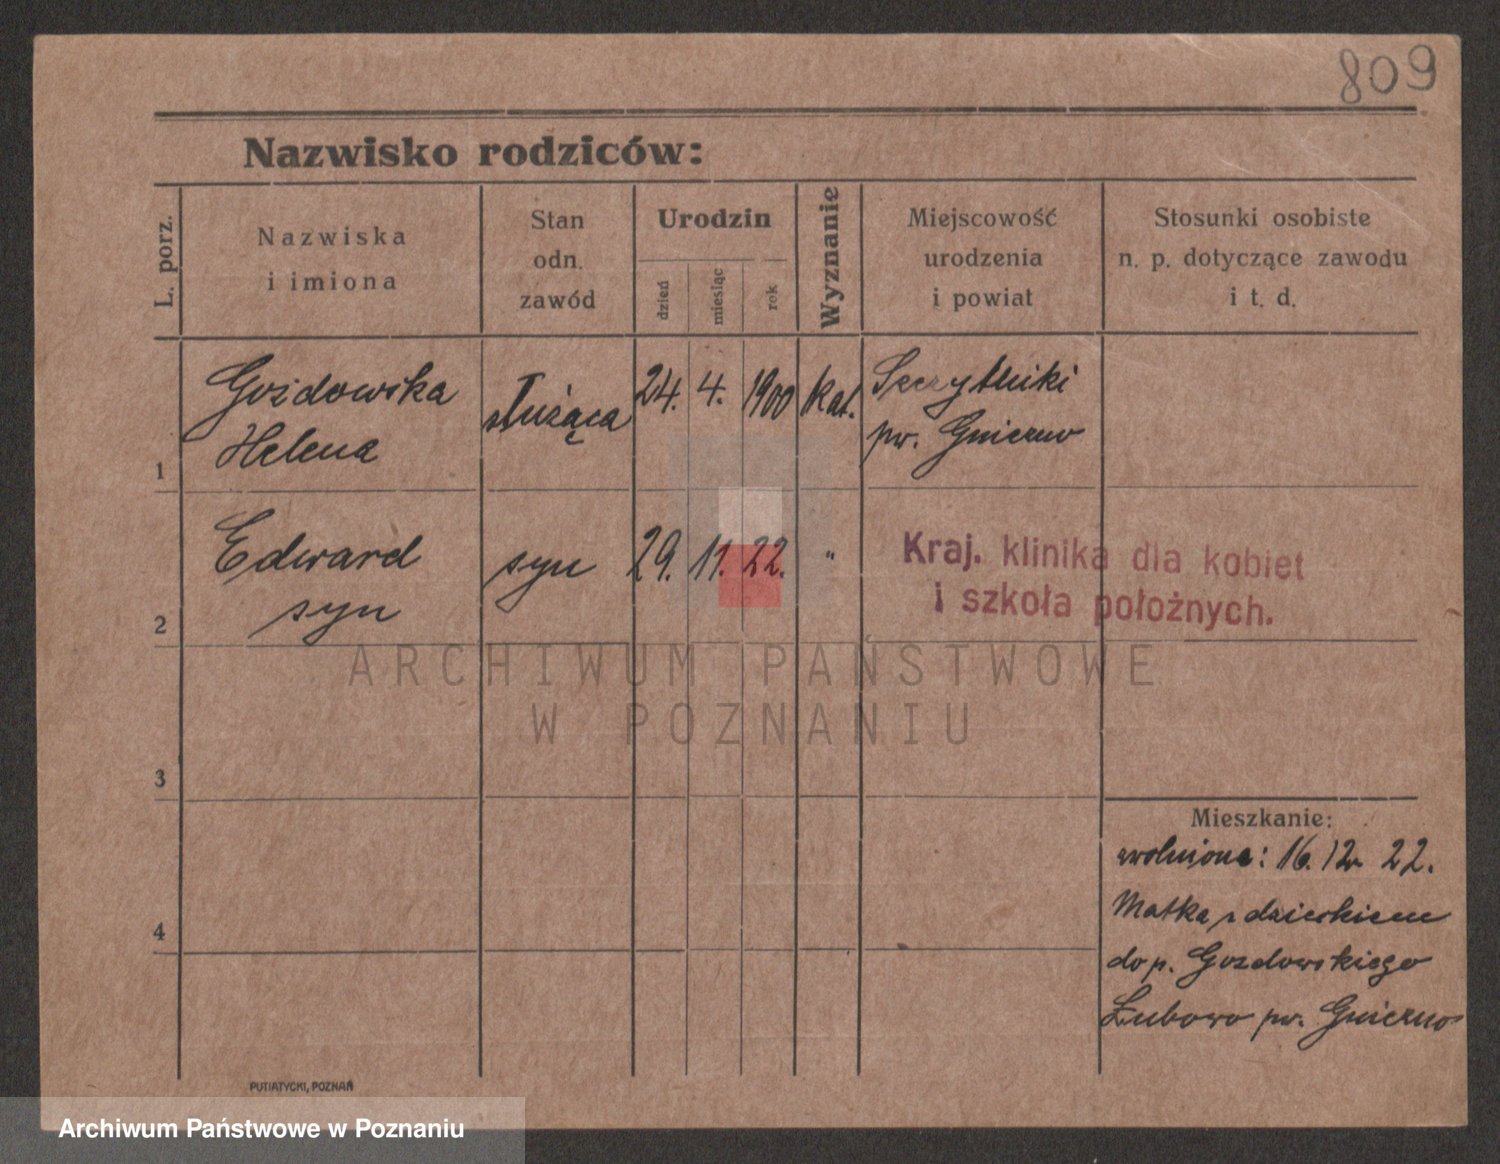 809
Nazwisko rodziców:
L. porz.
Nazwiska
i imiona
Stan
odn.
zawód
Urodzin
dzień
miesiąc
rok
Wyznanie
Miejscowość
urodzenia
i powiat
Stosunki osobiste
n. p. dotyczące zawodu
i t. d.
1
Goździowska
Helena
służąca
24. 4. 1900
Kat.
Szczytniki
pw. Gniezno
2
Edward
syn
syn
29. 11. 22.
"
Kraj. klinika dla kobiet
i szkoła położnych.
3
4
Mieszkanie:
zwolnione: 16. 12. 22.
Matka z dzieckiem
do p. Gozdowskiego
Łubowo pw. Gniezno
PUTIATYCKI, POZNAŃ
ARCHIWUM PAŃSTWOWE
W POZNANIU
Archiwum Państwowe w Poznaniu